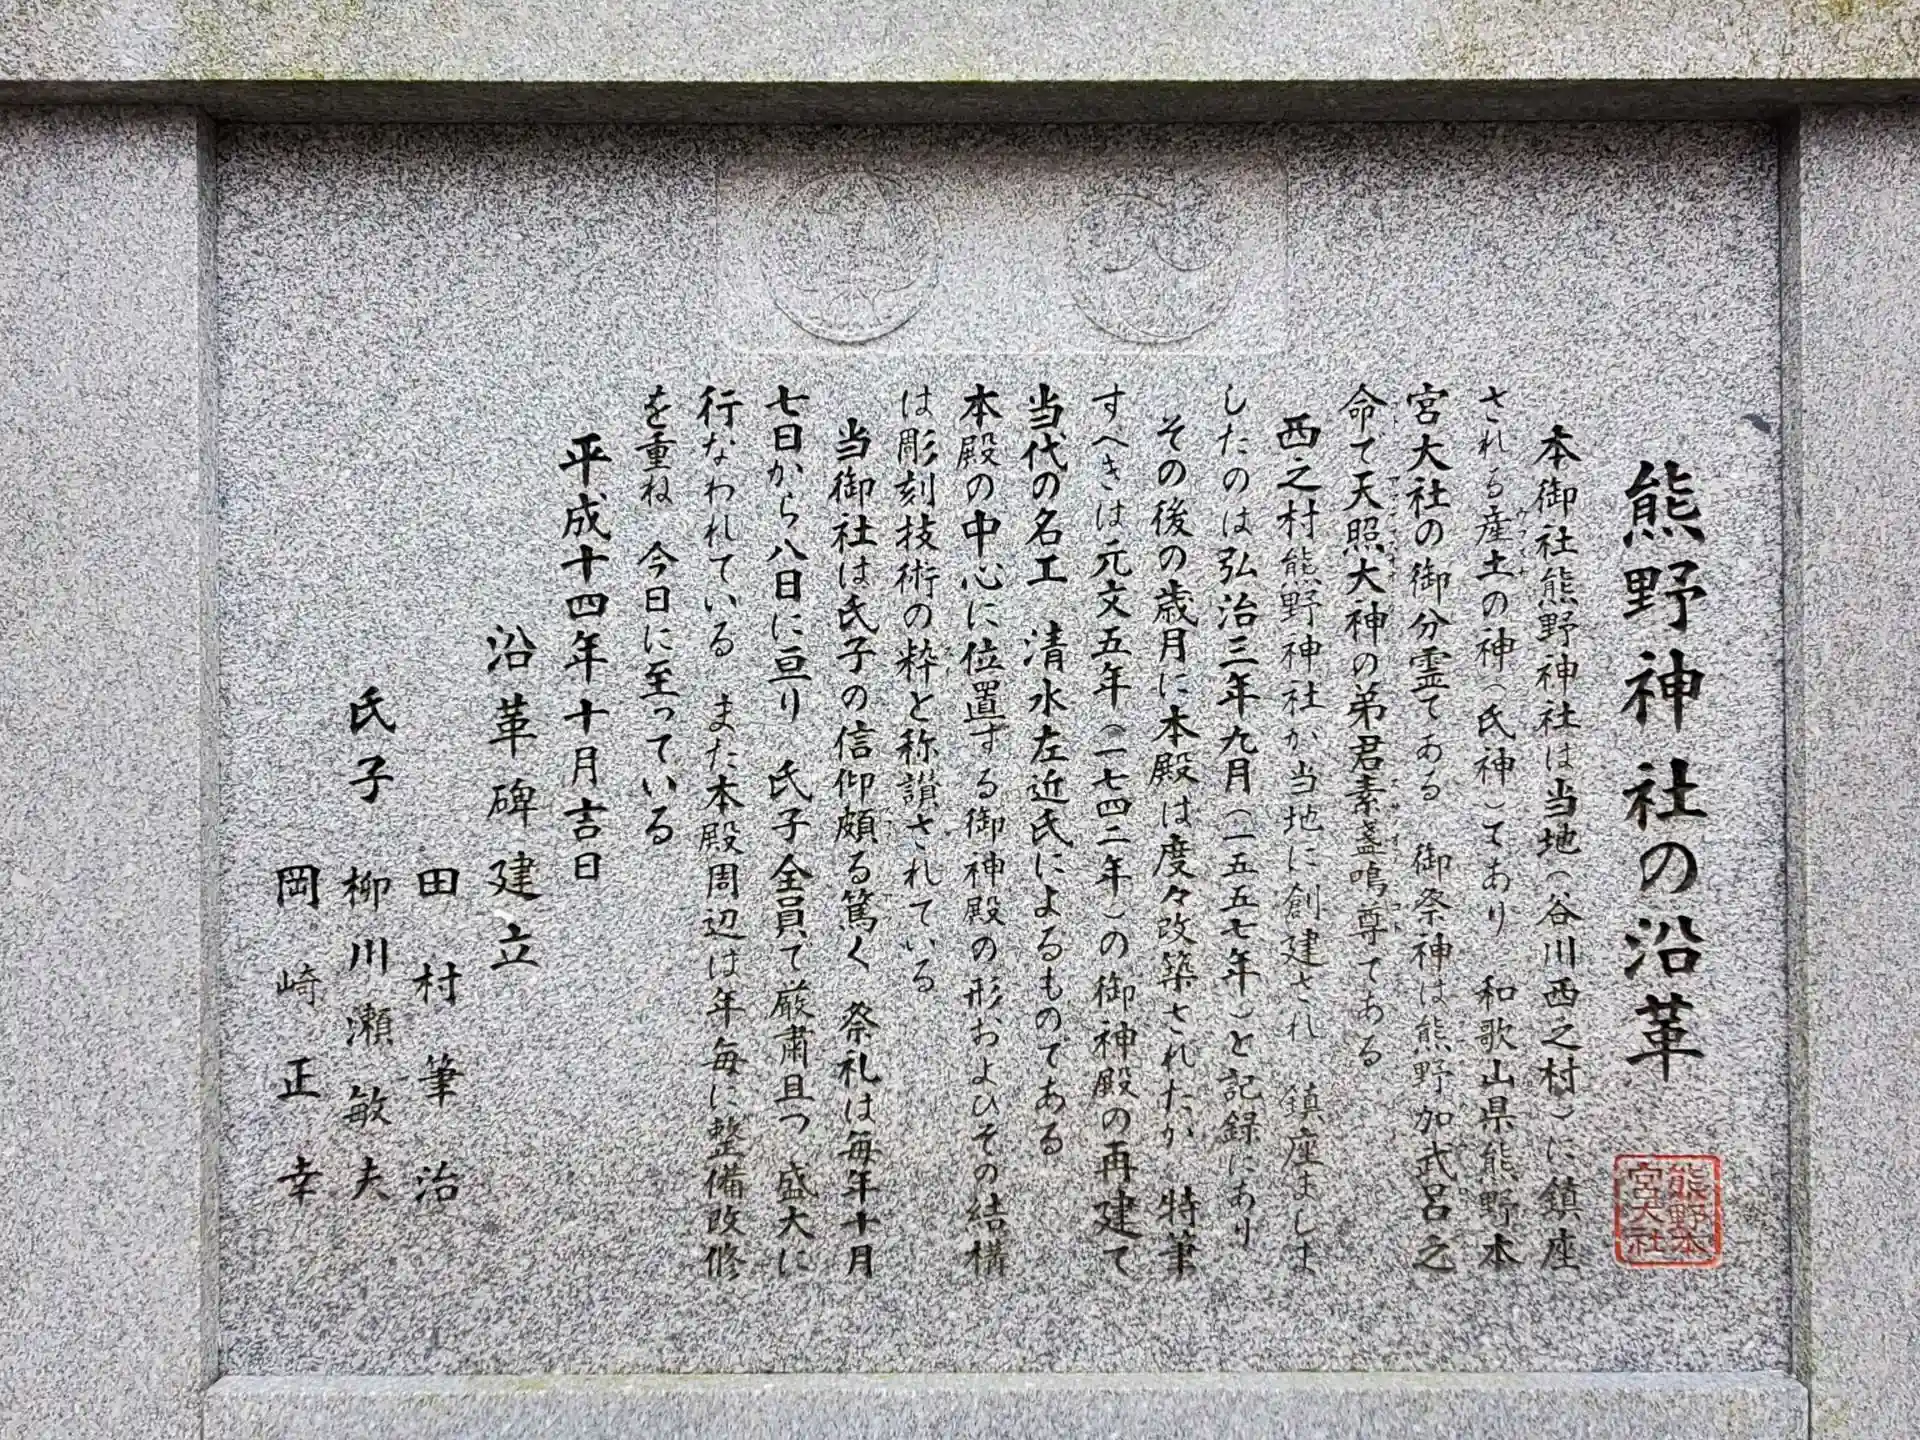 熊野神社の沿革
熊野本
宮大社
本御社熊野神社は当地(谷川西之村)に鎮座
される産土の神(氏神)てあり 和歌山県熊野本
宮大社の御分霊てある 御祭神は熊野加武呂之
命て天照大神の弟君素盞嗚尊てある
西之村熊野神社か当地に創建され 鎮座まします
したのは弘治三年九月(一五五七年)と記録にあり
その後の歳月に本殿は度々改築されたか 特筆
すへきは元文五年(一七四二年)の御神殿の再建て
当代の名工 清水左近氏によるものてある
本殿の中心に位置する御神殿の形、およひその結構
は彫刻技術の粋と称讃されている
当御社は氏子の信仰頗る篤く 祭礼は毎年十月
七日から八日に亘り 氏子全員て厳粛且つ盛大に
行なわれている また本殿周辺は年毎に整備改修
を重ね 今日に至っている
平成十四年十月吉日
沿革碑建立
田村筆治
氏子 柳川瀬敏夫
岡崎正幸